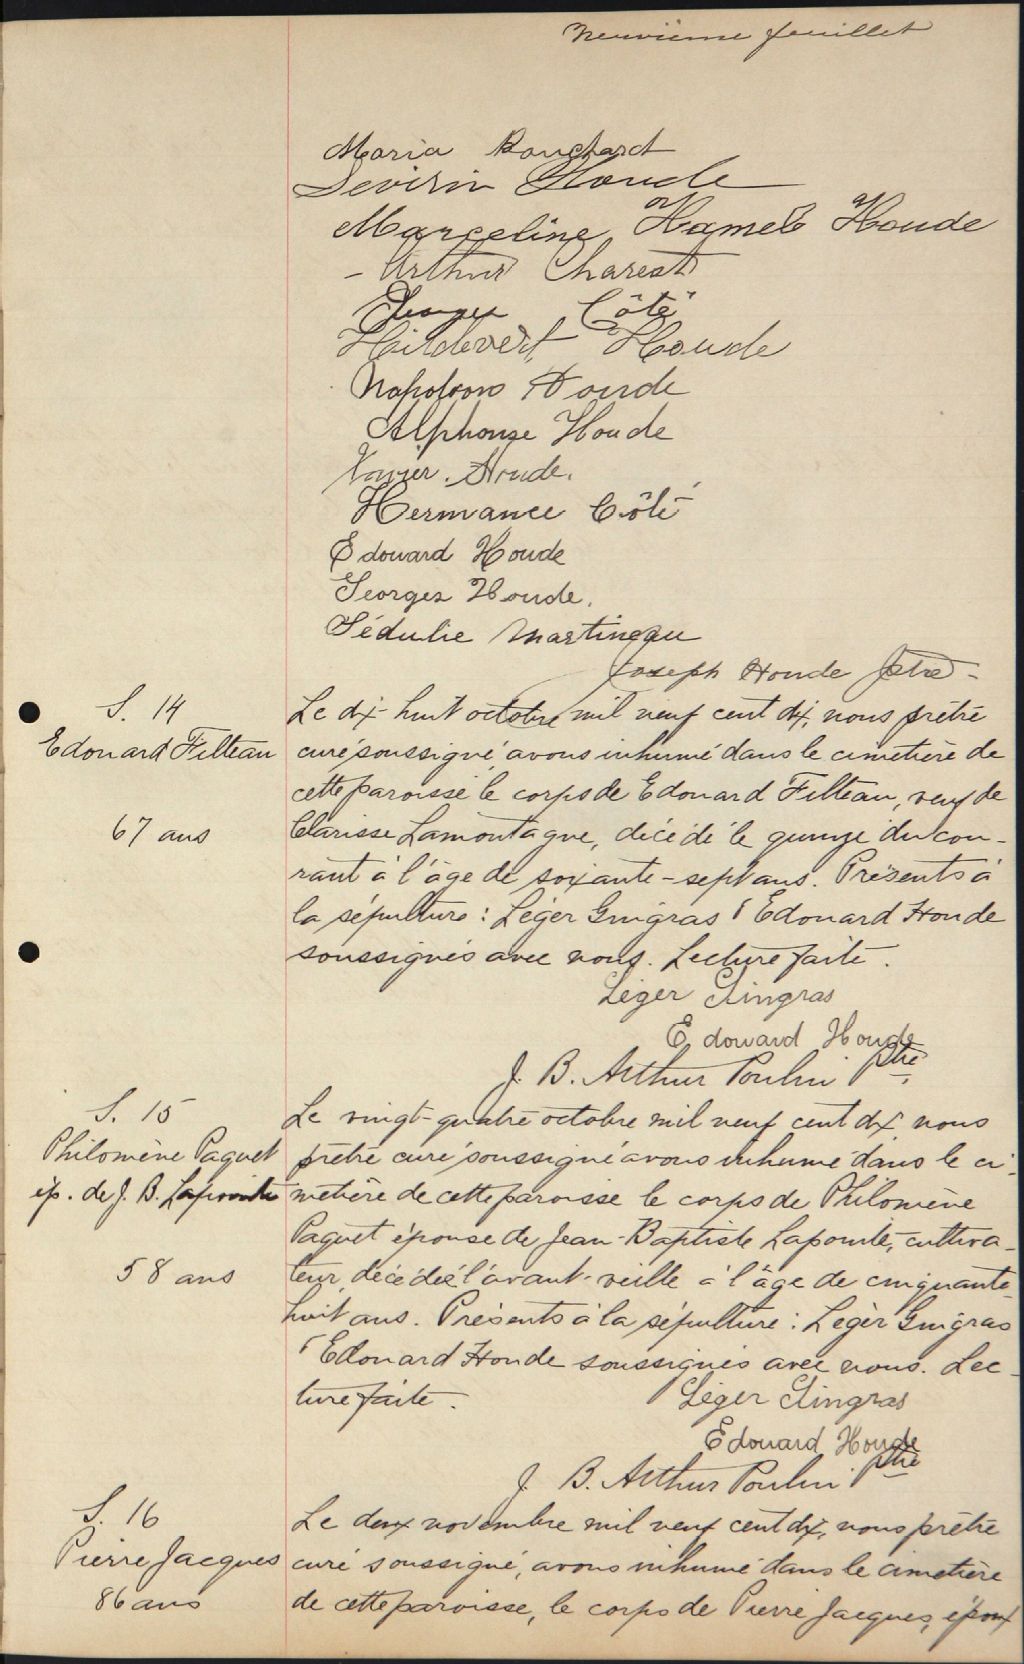 Neuvième feuillet
Maria Bouchard
Sévérin Houde
Marceline Hamel Houde
- Arthur Charest
Côté
Hildevert Houde
Napoléon Houde
Alphonse Houde
Xavier Houde.
Hermance Côté
Edouard Houde
Georges Houde.
Sédulie Martineau
Joseph Houde Ptre -
S. 14
Edouard Filteau
67 ans
Le dix-huit octobre mil neuf cent dix, nous prêtre
curé soussigné avons inhumé dans le cimetière de
cette paroisse le corps de Edouard Filteau, veuf de
Clarisse Lamontagne, décédé le quinze du cou-
rant à l'âge de soixante-sept ans. Présents à
la sépulture : Léger Gingras & Edouard Houde
soussignés avec nous. Lecture faite.
Léger Gingras
Edouard Houde
J. B. Arthur Poulin Ptre
S. 15
Philomène Paquet
ép. de J. B. Lapointe
58 ans
Le vingt-quatre octobre mil neuf cent dix nous
prêtre curé soussigné avons inhumé dans le ci-
metière de cette paroisse le corps de Philomène
Paquet épouse de Jean-Baptiste Lapointe, cultiva-
teur, décédée l'avant-veille à l'âge de cinquante-
huit ans. Présents à la sépulture : Léger Gingras
& Edouard Houde soussignés avec nous. Lec-
ture faite.
Léger Gingras
Edouard Houde
J. B. Arthur Poulin Ptre
S. 16
Pierre Jacques
86 ans
Le deux novembre mil neuf cent dix, nous prêtre
curé soussigné, avons inhumé dans le cimetière
de cette paroisse, le corps de Pierre Jacques, époux